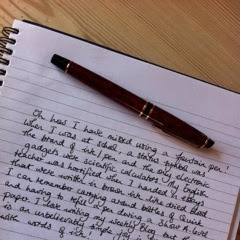 Oh how I have missed using a fountain pen!
When I was at school a status symbol was
the brand of ink pen and the only electronic
gadgets were scientific calculators. My English
teacher was horrified when I handed in essays
that were written in brown ink like dried blood
I can remember carrying around bottles of Quink
and having to refill a pen during a
paper. I love writing my weekly blog but there
is an unbelievably simple
words of ink